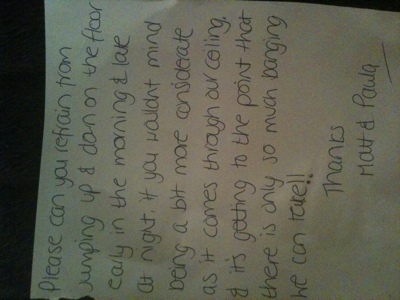 Please can you refrain from
jumping up & down on the floor
early in the morning & late
at night. If you wouldnt mind
being a bit more considerate
as it comes through our ceiling,
& it's getting to the point that
there is only so much banging
we can take!!
Thanks
Matt & Paula